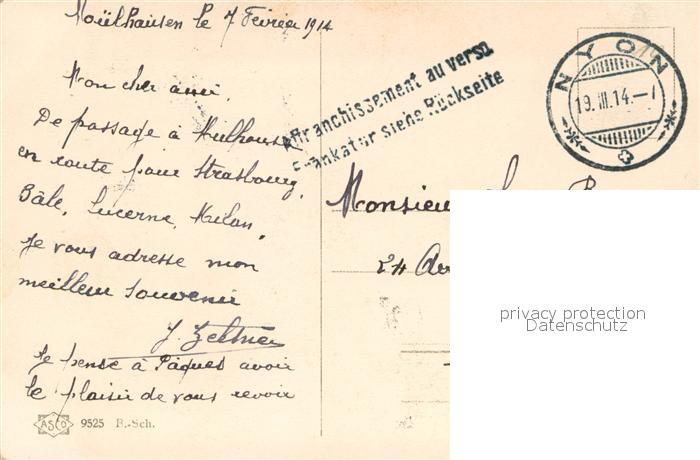 Moülhausen le 7 Février 1914
Mon cher ami,
De passage à Mülhouse
en route pour Strasbourg,
Bâle, Lucerne, Milan,
je vous adresse mon
meilleur souvenir
J. Zeltner
Je pense à Pâques avoir
le plaisir de vous revoir
ASCO 9525 B.-Sch.
Affranchissement au verso.
Frankatur siehe Rückseite
NYON
19.III.14.-1
Monsieur
24
privacy protection
Datenschutz